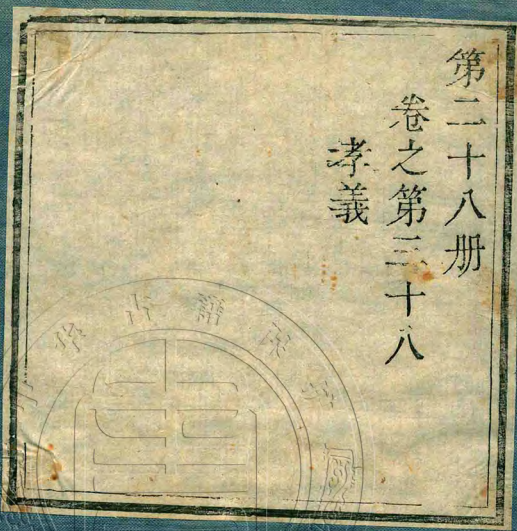 第二十八册
卷之第三十八
孝義